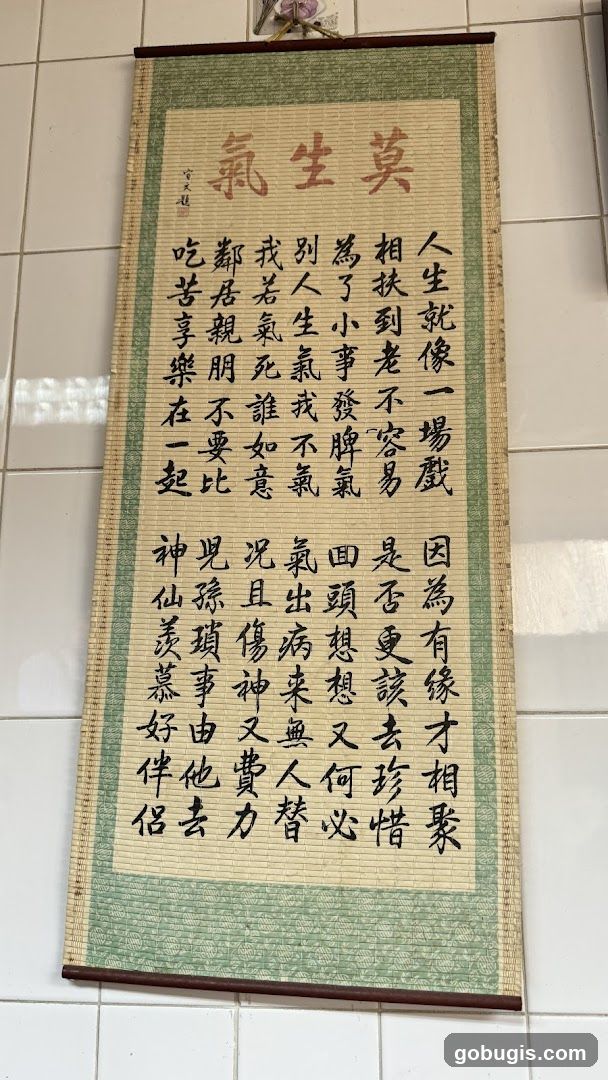 莫生氣
人生就像一場戲
因為有緣才相聚
相扶到老不容易
是否更該去珍惜
為了小事發脾氣
回頭想想又何必
別人生氣我不氣
氣出病来無人替
我若氣死誰如意
况且傷神又費力
鄰居親朋不要比
兒孫瑣事由他去
吃苦享樂在一起
神仙羡慕好伴侶
gobugis.com